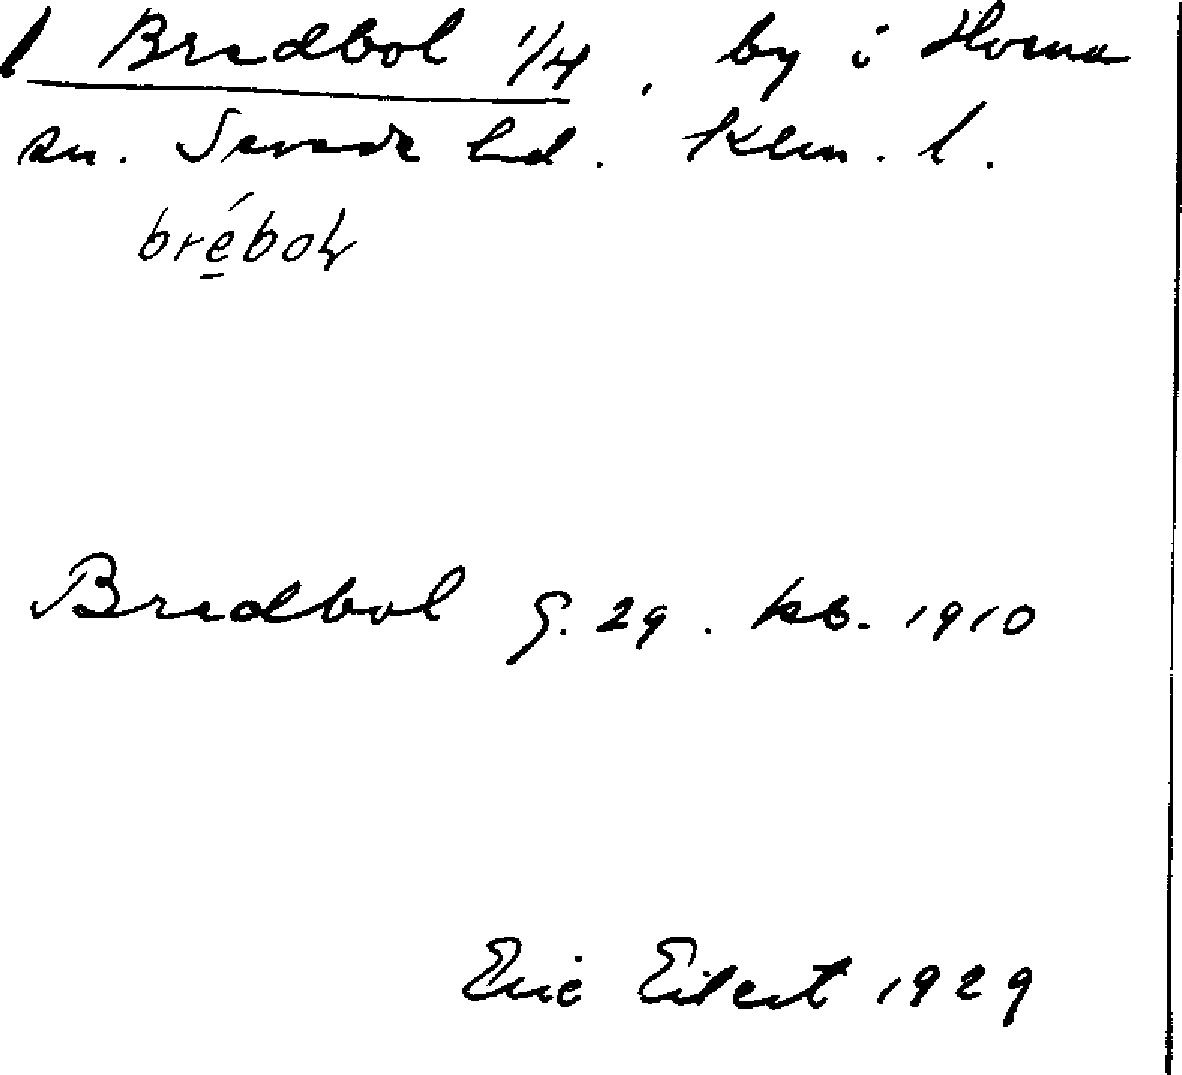 Bredbol 1/4, by i Horna
sn. Sevede hd. Kalm. l.
bréboḷ
Bredbol G. 29. kb. 1910
Eric Eilert 1929